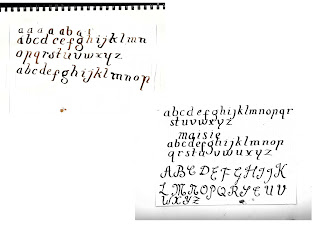 a a a a a b a
abcdcefghijklmn
opqrstuvwxyz
abcdefghijklmnop
abcdefghijklmnopqr
stuvwxyz
maisie
abcdefghijklmnop
qrstuvwuxyz
ABCDEFGHIJK
LMNOPQRSTUV
WXYZ